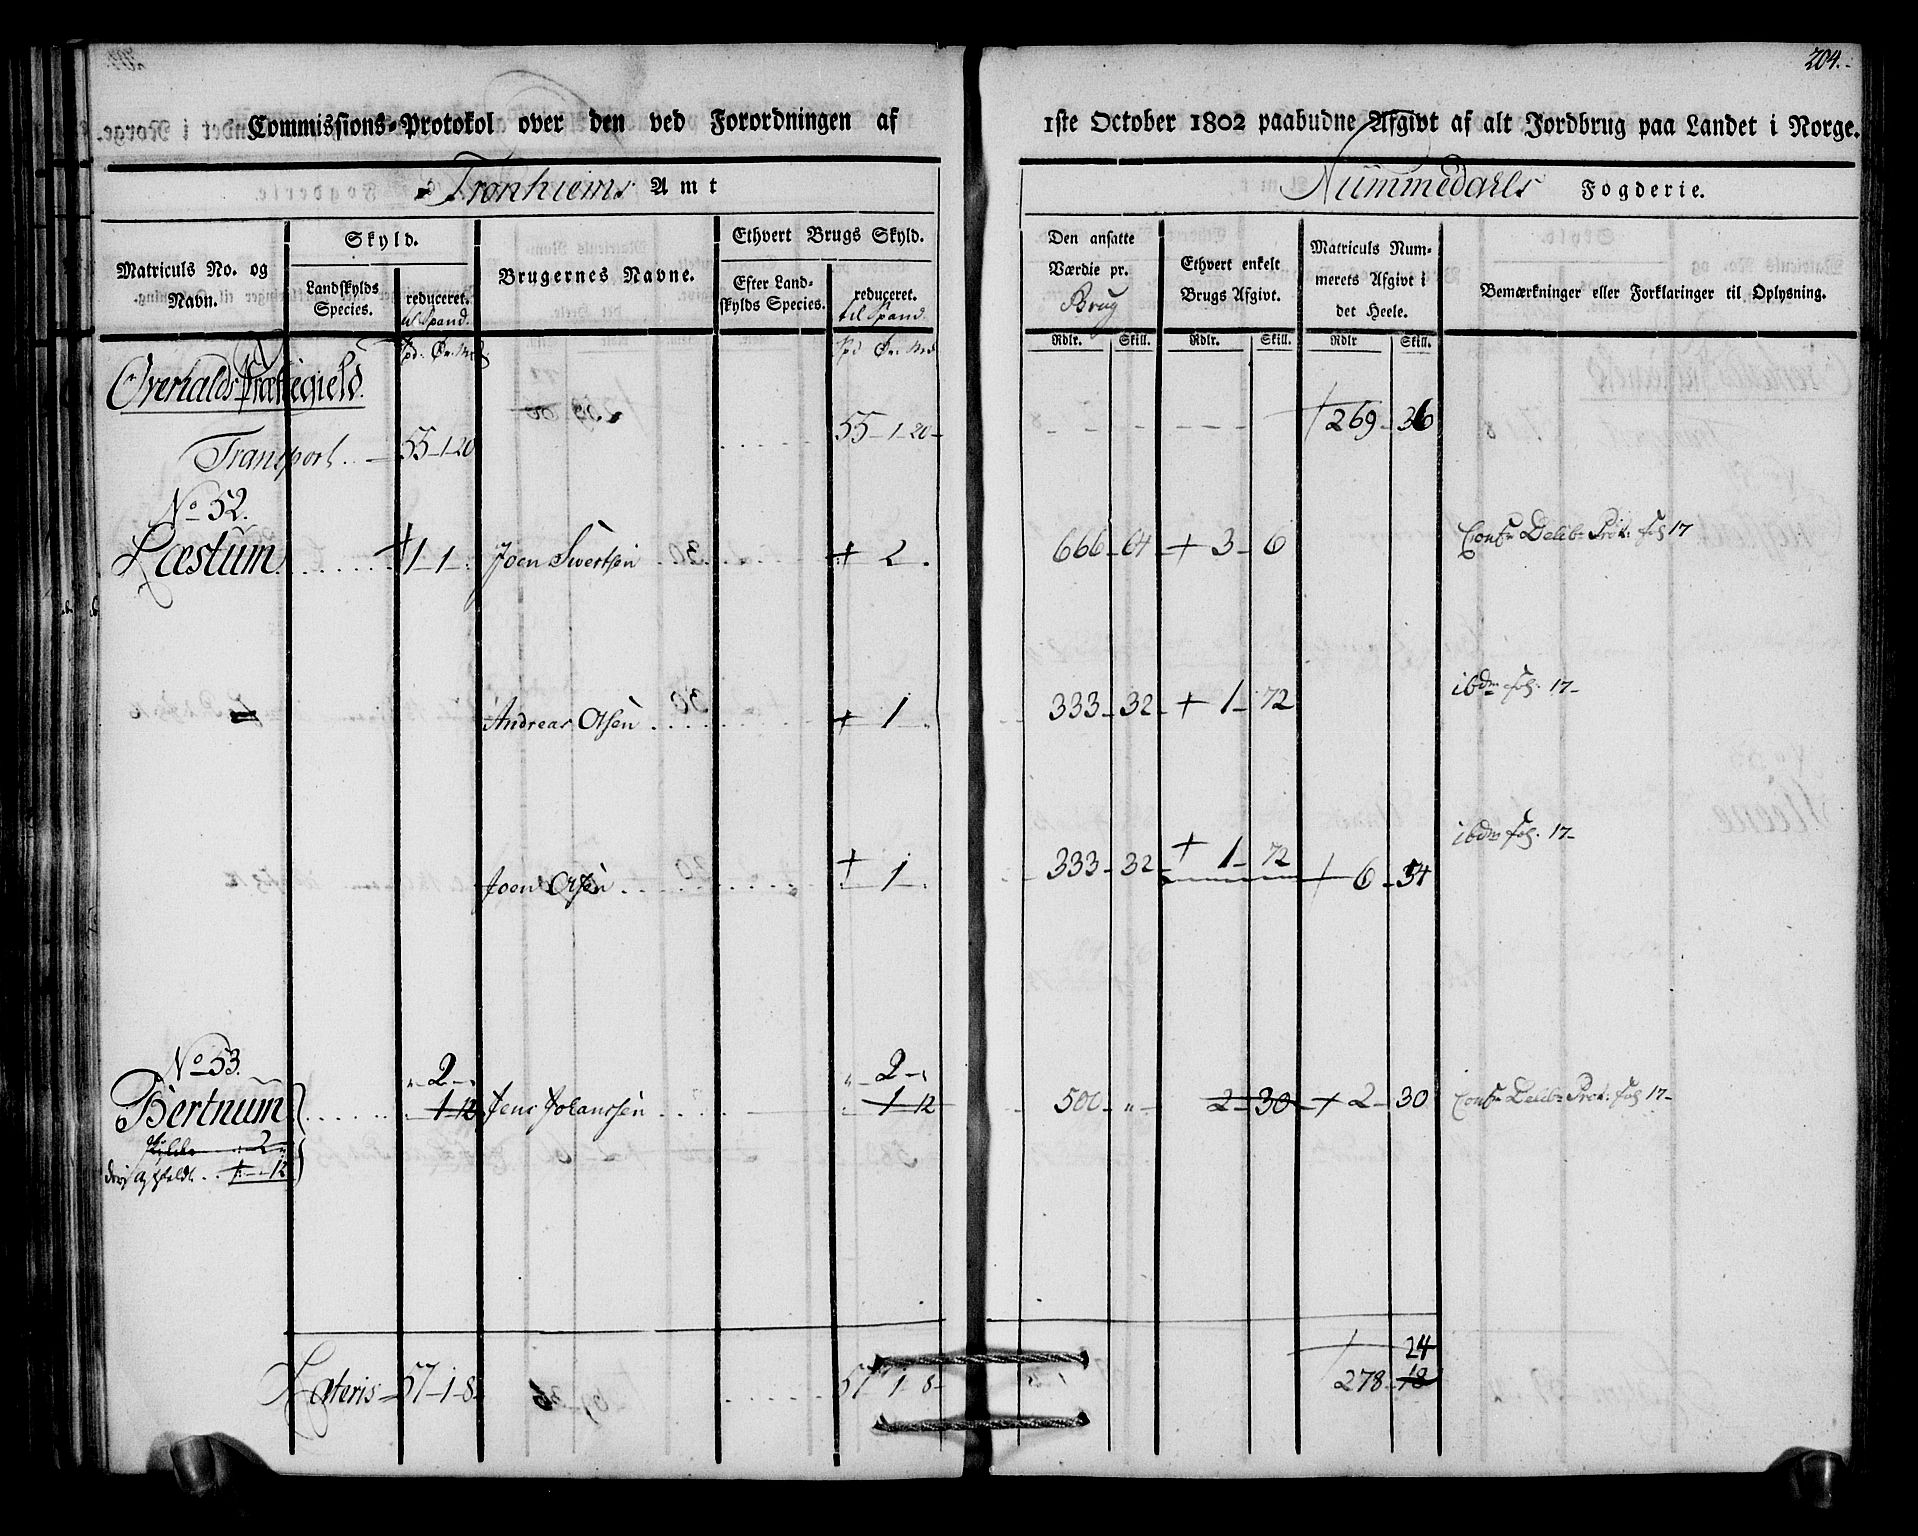 204.
Commissions-Protokol over den ved Forordningen af 1ste October 1802 paabudne Afgivt af alt Jordbrug paa Landet i Norge.
Tronhiems Amt
Nummedahls Fogderie.
Matriculs No. og Navn.
Skyld.
Landskylds Species.
reduceret. til Spand.
Brugernes Navne.
Ethvert Brugs Skyld.
Efter Landskylds Species.
reduceret. til Spand
Den ansatte Værdie pr. Brug
Ethvert enkelt Brugs Afgivt.
Matriculs Nummerets Afgivt i det Heele.
Bemærkninger eller Forklaringer til Oplysning.
Rdlr. Skill. Rdlr. Skill. Rdlr Skill.
Overhalds Præstegield.
Transport 55-1-20 55-1-20- 269-36
No 52.
Læstum 1-1 Joen Sivertsen + 2 666-64 + 3-6 Confr Delib: Prot: fol 17
Andreas Olsen + 1 333-32 + 1-72 ibdm fol. 17-
Joen Olsen + 1 333-32 + 1-72 6-54 ibdm fol. 17-
No 53.
2 2
Bertnum 1-12 Jens Johanssen 1-12 500 2-30 + 2-30 Confr Delib: Prot: fol 17-
2
12
24
Lateris 57-1-8 57-1-8 278-18